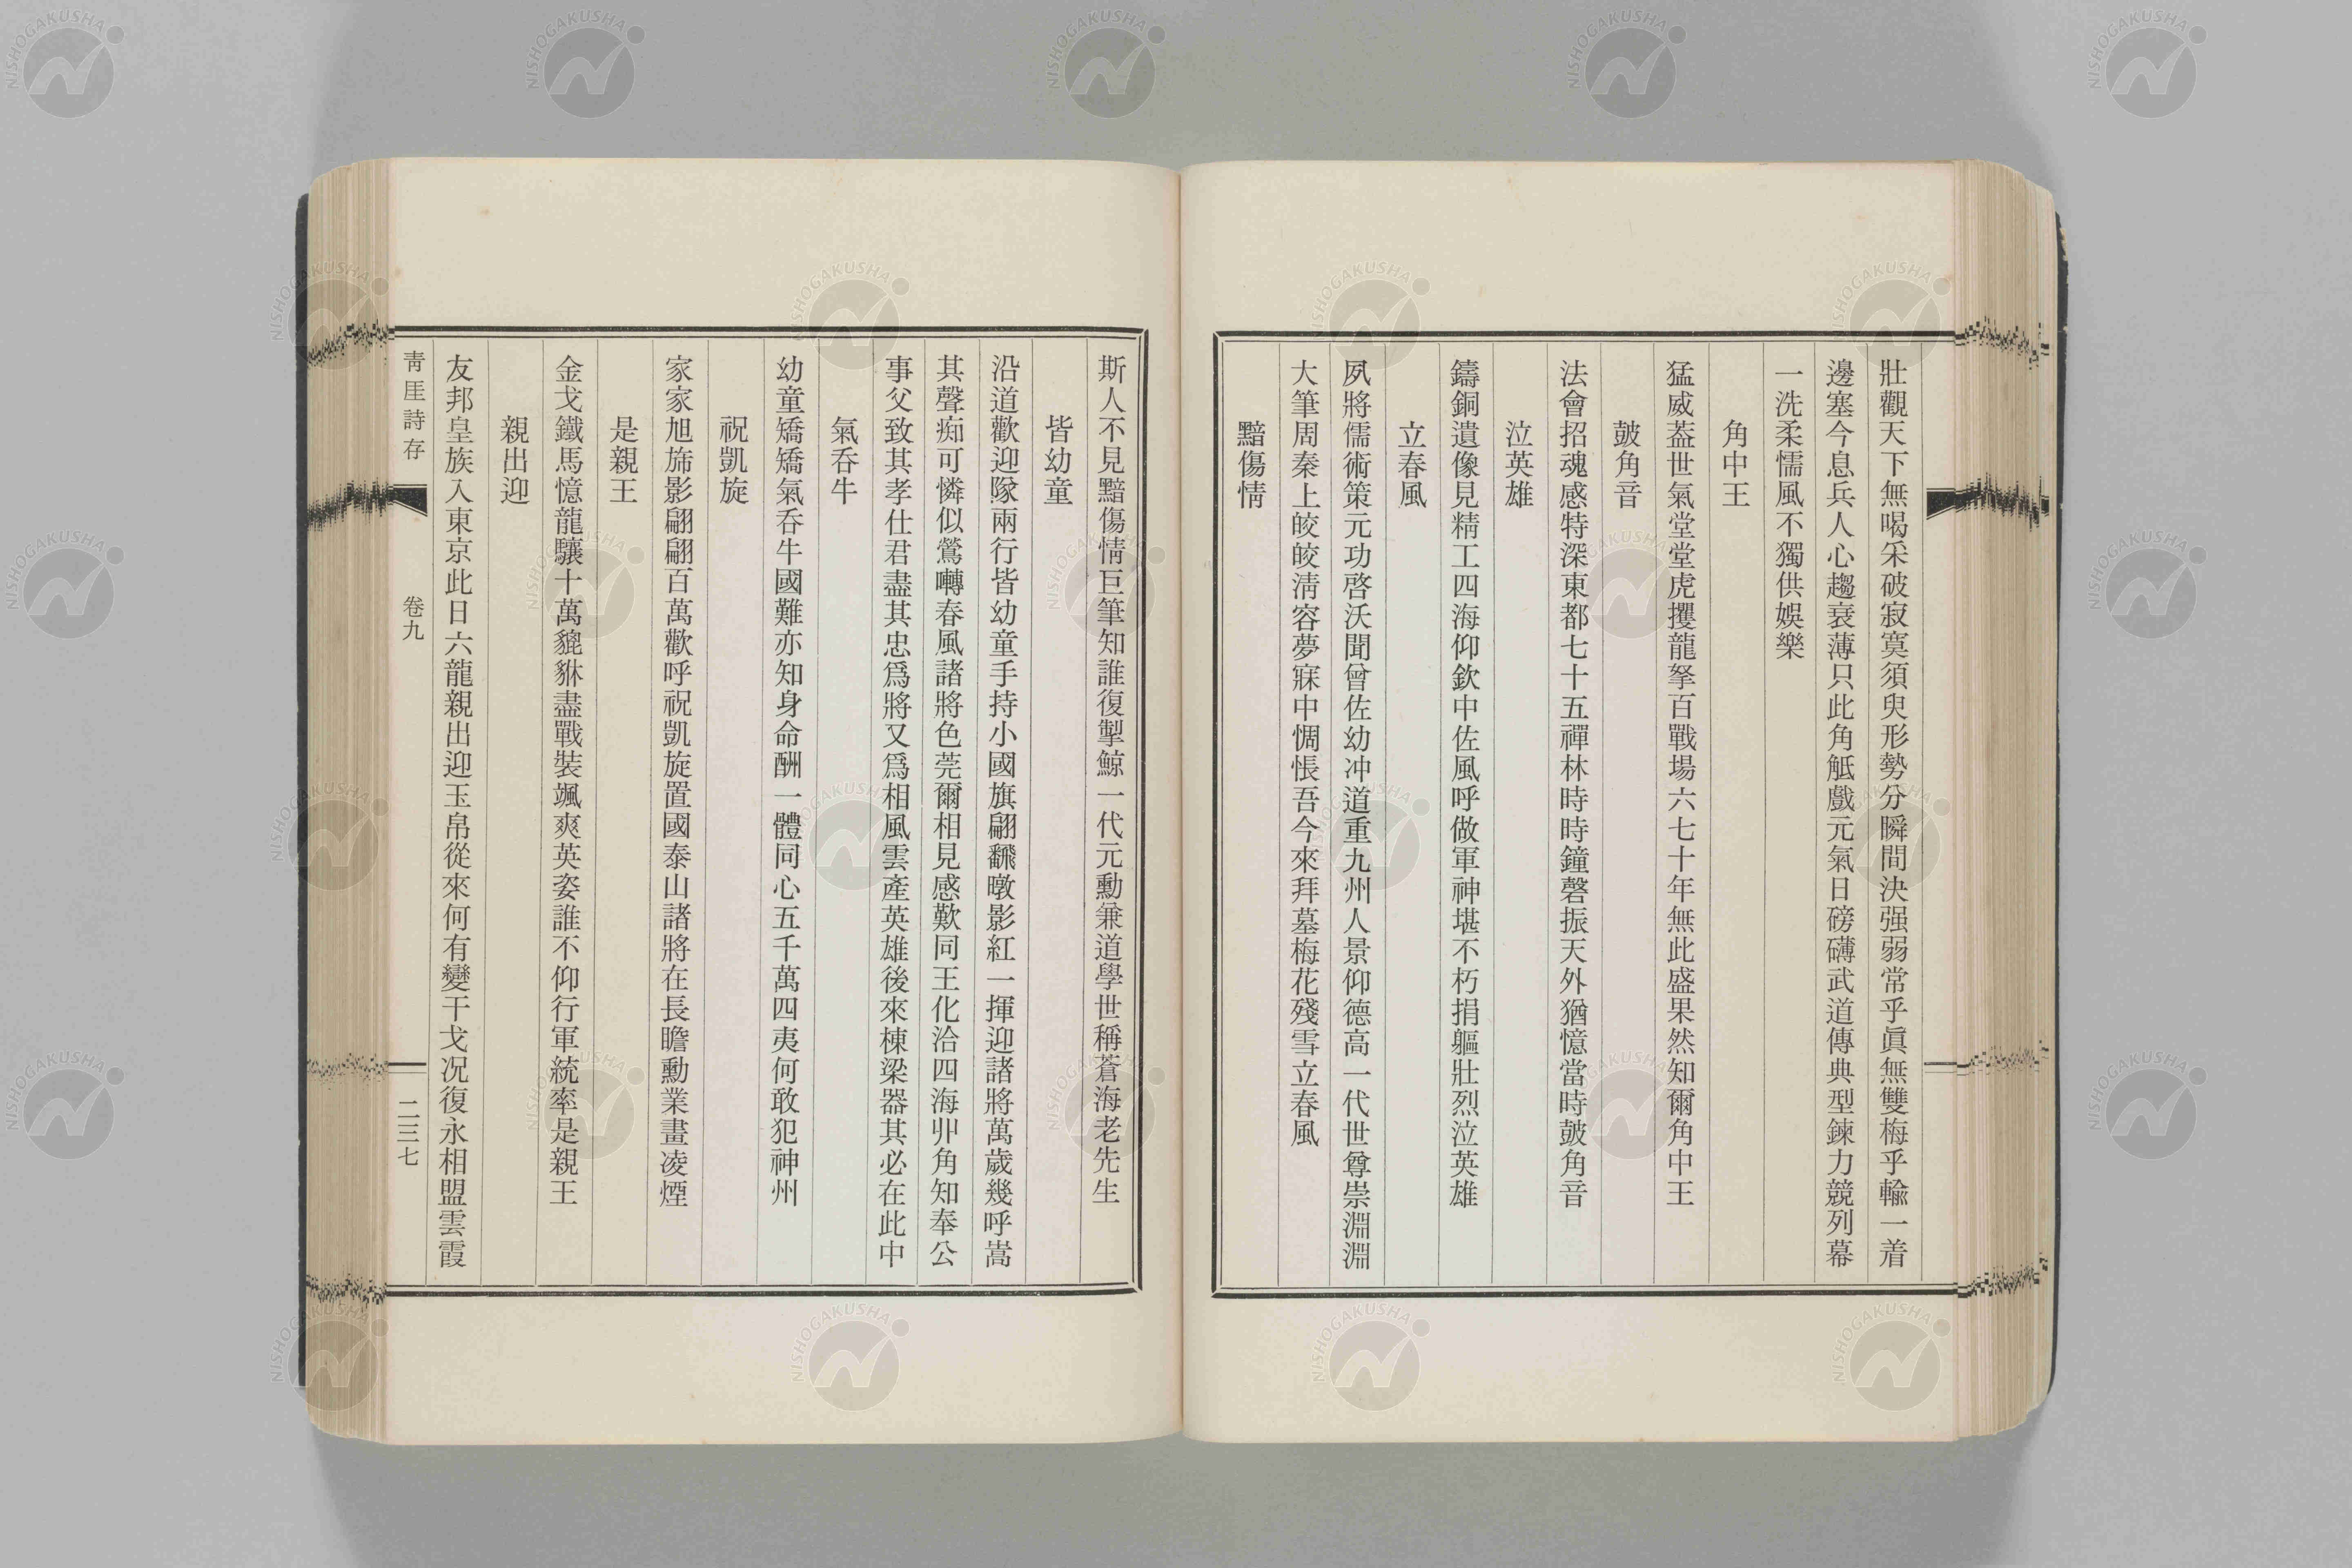 壯觀天下無喝采破寂寞須臾形勢分瞬間決强弱常乎眞無雙梅乎輸一着
邊塞今息兵人心趨衰薄只此角觝戲元氣日磅礴武道傳典型鍊力競列幕
一洗柔懦風不獨供娛樂
角中王
猛威蓋世氣堂堂虎攫龍拏百戰場六七十年無此盛果然知爾角中王
鼓角音
法會招魂感特深東都七十五禪林時時鐘磬振天外猶憶當時鼓角音
泣英雄
鑄銅遺像見精工四海仰欽中佐風呼做軍神堪不朽捐軀壯烈泣英雄
立春風
夙將儒術策元功啓沃聞曾佐幼冲道重九州人景仰德高一代世尊崇淵淵
大筆周秦上皎皎淸容夢寐中惆悵吾今來拜墓梅花殘雪立春風
黯傷情
斯人不見黯傷情巨筆知誰復掣鯨一代元勳兼道學世稱蒼海老先生
皆幼童
沿道歡迎隊兩行皆幼童手持小國旗翩飜暾影紅一揮迎諸將萬歲幾呼嵩
其聲痴可憐似鶯囀春風諸將色莞爾相見感歎同王化洽四海丱角知奉公
事父致其孝仕君盡其忠爲將又爲相風雲產英雄後來棟梁器其必在此中
氣呑牛
幼童矯矯氣呑牛國難亦知身命酬一體同心五千萬四夷何敢犯神州
祝凱旋
家家旭旆影翩翩百萬歡呼祝凱旋置國泰山諸將在長瞻勳業畫凌煙
是親王
金戈鐵馬憶龍驤十萬貔貅盡戰裝颯爽英姿誰不仰行軍統率是親王
親出迎
友邦皇族入東京此日六龍親出迎玉帛從來何有變干戈況復永相盟雲霞
靑厓詩存
卷九
二三七
NISHOGAKUSHA